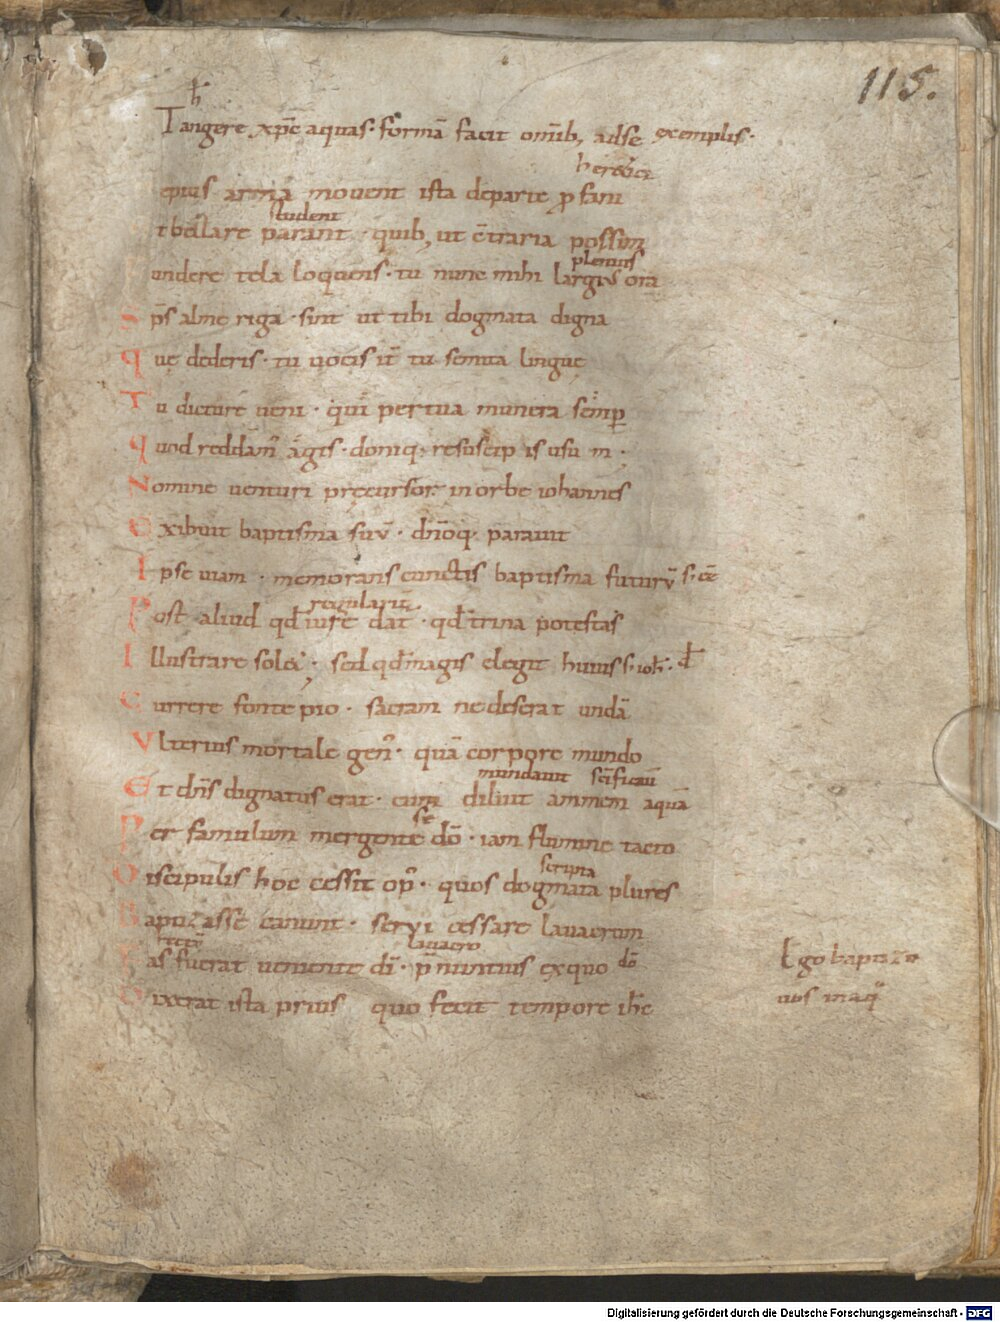 115.
h̄
Tangere xp̄c aquas· formā facit omīb, adse exemplis·
heretici
epius arma movent ista departe ꝓfani
student
t bellare parant · quib, ut c̄traria possim
plenius
undere tela loquens· tu nunc mihi largius ora
Sp̄s alme riga · sint ut tibi dogmata digna
que dederis· tu uocis it̄ tu semita lingue
Tu dicture ueni · qui per tua munera semp̄
quod reddam̄ agis· doniq; resuscipis usum·
Nomine uenturi precursor in orbe iohannes
Exibuit baptisma suū· dn̄oq; parauit
Ipse uiam · memorans cunctis baptisma futurū s· ēē
regularit̄
Post aliud qđ iure dat · qđ trina potestas
Illustrare solet· sed qđ magis elegit huius s· ioh̄·
Currere fonte pio · sacram ne deserat undā
Vlterius mortale gen᾽· quā corpore mundo
mundauit sc̄ificauit
Et dn̄s dignatus erat· cum diluit ammem aquā
se
Per famulum mergente dō · iam flumine tacto
scripta
Discipulis hoc cessit op᾽· quos dogmata plures
Baptizasse canunt · servi cessare lauacrum
lauacro
Fas fuerat ueniente dī· p̄nuntius exquo dō
Dixerat ista prius quo fecit tempore ih̄c
Ego baptizo
uos in aq̄
Digitalisierung gefördert durch die Deutsche Forschungsgemeinschaft - DFG